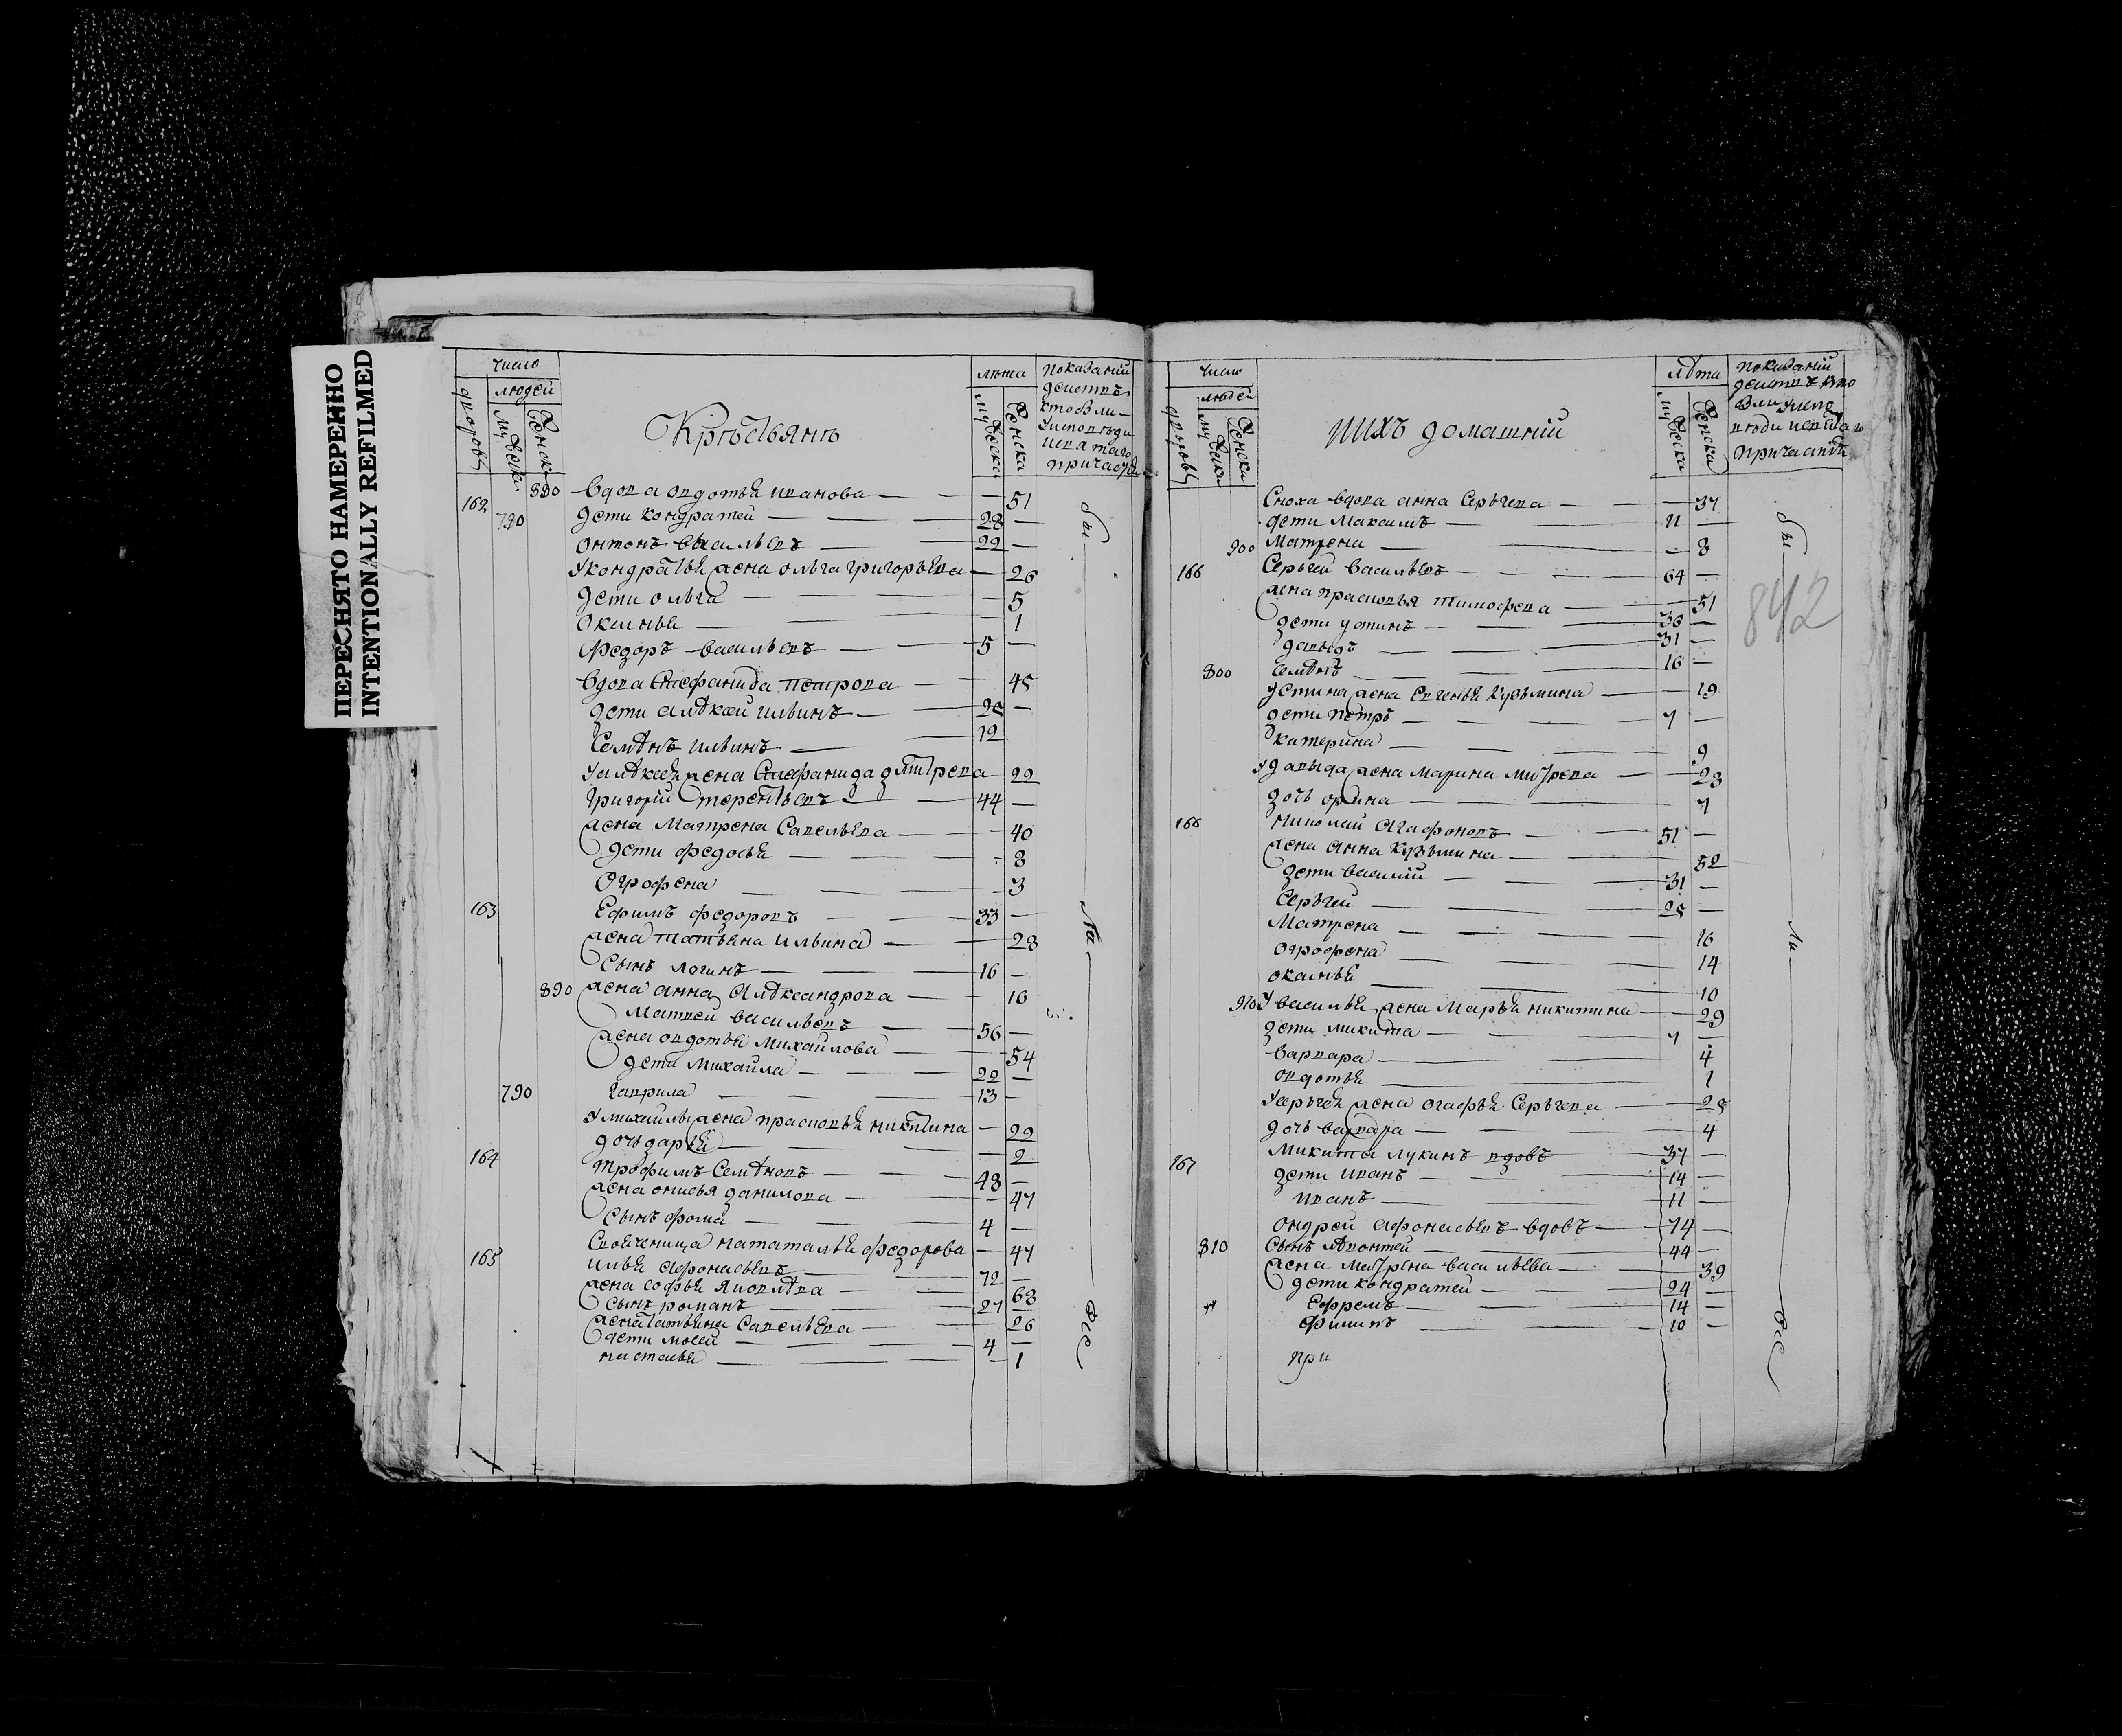 ПЕРЕСНЯТО НАМЕРЕННО
INTENTIONALLY REFILMED
число
людей
дворовъ
мужеска
женска
Крестьянъ
лѣта
мужеска
женска
показаніи
действъ
кто въ ли
причаст
880 вдова овдотья иванова — 51
162
790 дети кондратей — 28
онтонъ васильевъ — 22
у кондратья жена ольга григорьева — 26
дети ольга — 5
оксинья — 1
федоръ васильевъ — 5
вдова стефанида петрова — 45
дети алѣкѣй ильинъ — 25
семѣнъ ильинъ — 12
у алѣкѣя жена стефанида дмитрева — 22
григорій терентьевъ — 44
жена матрена савельева — 40
дети федосья — 8
огрофена — 3
163 ефимъ федоровъ — 33
жена татьяна ильина — 28
сынъ логинъ — 16
890 жена анна алѣксандрова — 16
матвей васильевъ — 56
жена овдотья михайлова — 54
дети михайла — 22
790 гаврила — 13
у михайлы жена прасковья никитина — 22
дочь дарья — 2
164 трофимъ семѣновъ — 48
жена онисья данилова — 47
сынъ фома — 4
своячиница наталья федорова — 47
165 илья афонасьевъ — 72
жена софья яковлѣва — 68
сынъ романъ — 27
жена татьяна савельева — 26
дети мосей — 4
настасья — 1
бы
ли
все
число
людей
дворовъ
мужеска
женска
ихъ домашній
лѣта
мужеска
женска
показаній
842
сноха вдова анна серьгева — 37
дети максимъ — 11
900 матрена — 8
166 серьгей васильевъ — 64
жена прасковья тимофева — 51
дети устинъ — 36
давыдъ — 31
800 семѣнъ — 16
у устина жена евгенья кузьмина — 19
дети петръ — 7
катерина — 9
у давыда жена марина митрева — 23
дочь орина — 7
166 николай агафоновъ — 51
жена анна кузьмина — 52
дети василій — 31
серьгей — 25
матрена — 16
огрофена — 14
оксинья — 10
910 у василья жена марья никитина — 29
дети микита — 7
варвара — 4
овдотья — 1
у серьгея жена огафья серьгева — 25
дочь варвара — 4
167 микита лукинъ вдовъ — 37
дети иванъ — 14
иванъ — 11
ондрей афонасьевъ вдовъ — 74
810 сынъ лѣонтей — 44
жена матрена васильева — 39
дети кондратей — 24
ефремъ — 14
филипъ — 10
при
бы
ли
все